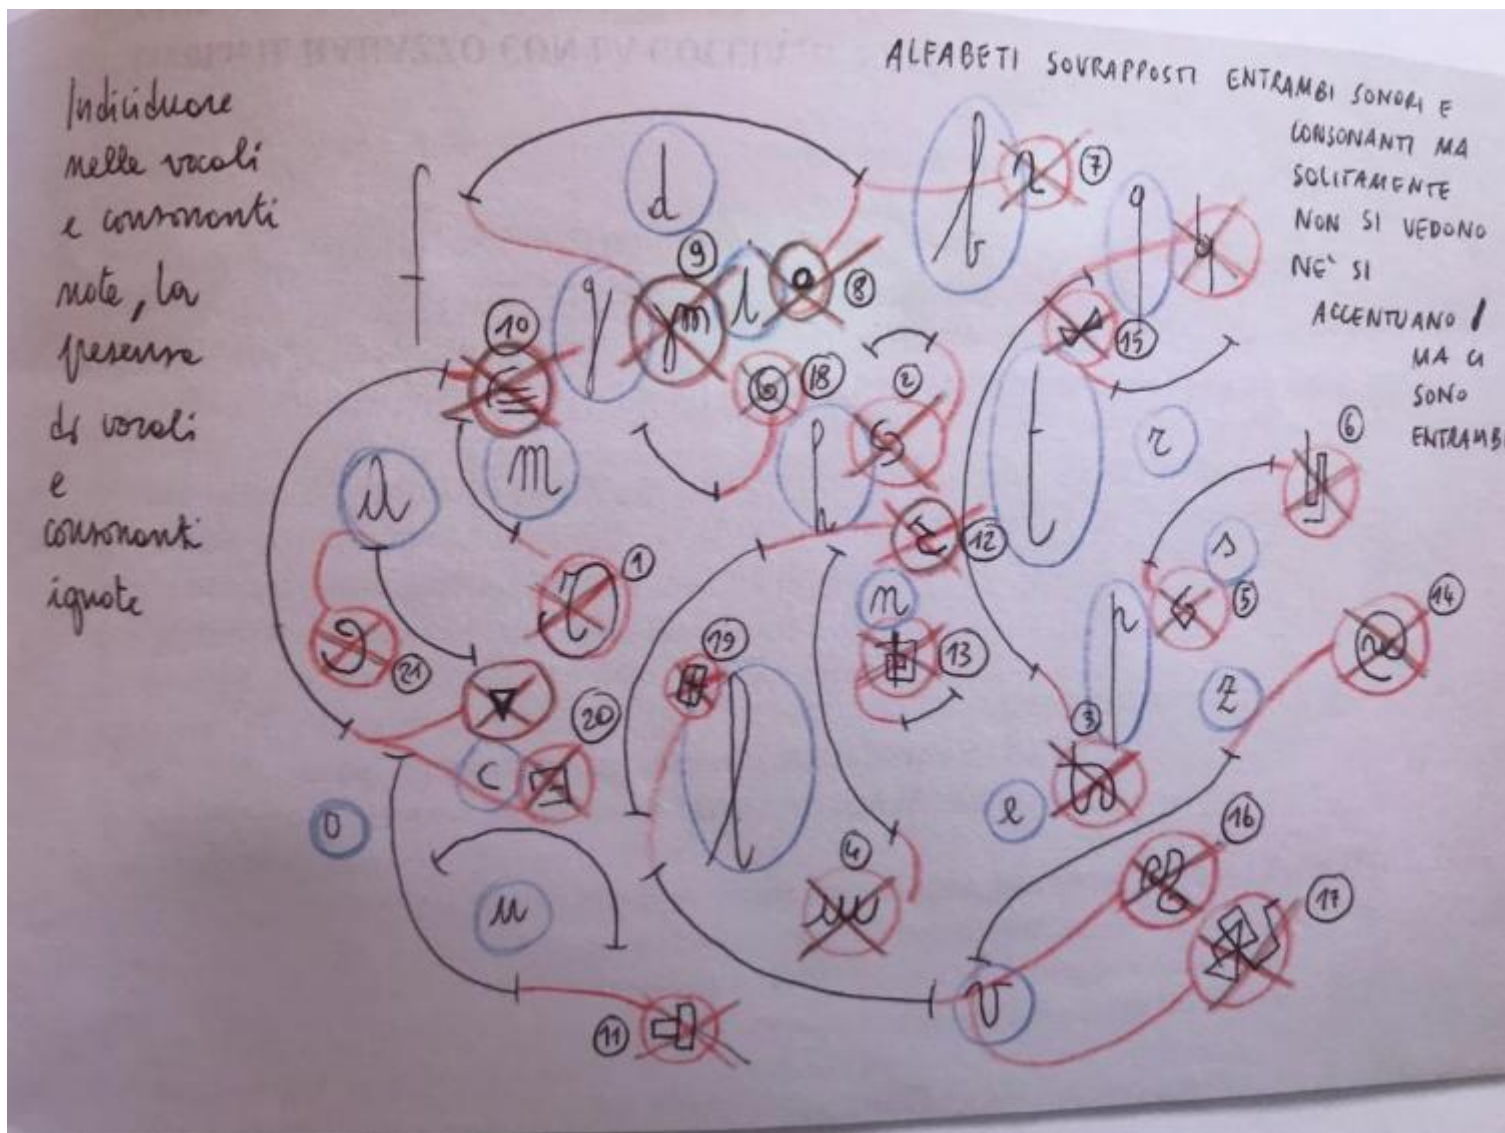 Individuare
nelle vocali
e consonanti
note, la
presenza
di vocali
e
consonanti
ignote
ALFABETI SOVRAPPOSTI ENTRAMBI SONORI E
CONSONANTI MA
SOLITAMENTE
NON SI VEDONO
NE' SI
ACCENTUANO /
MA CI
SONO
ENTRAMBI
f
d
b
7
q
9
l
8
g
15
10
m
18
2
h
t
r
6
a
1
12
n
13
s
5
p
14
21
19
z
20
c
3
e
o
l
4
16
u
17
v
11